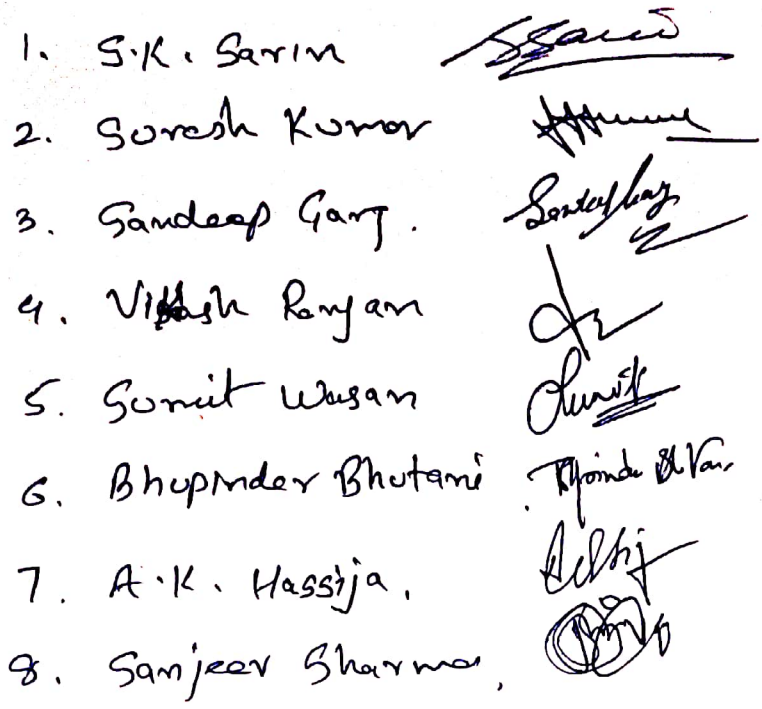 1. S.K. Sarin
2. Suresh Kumar
3. Sandeep Garg.
4. Vikash Ranjan
5. Sumit Wasan
6. Bhupinder Bhutani
7. A.K. Hassija.
8. Sanjeev Sharma,